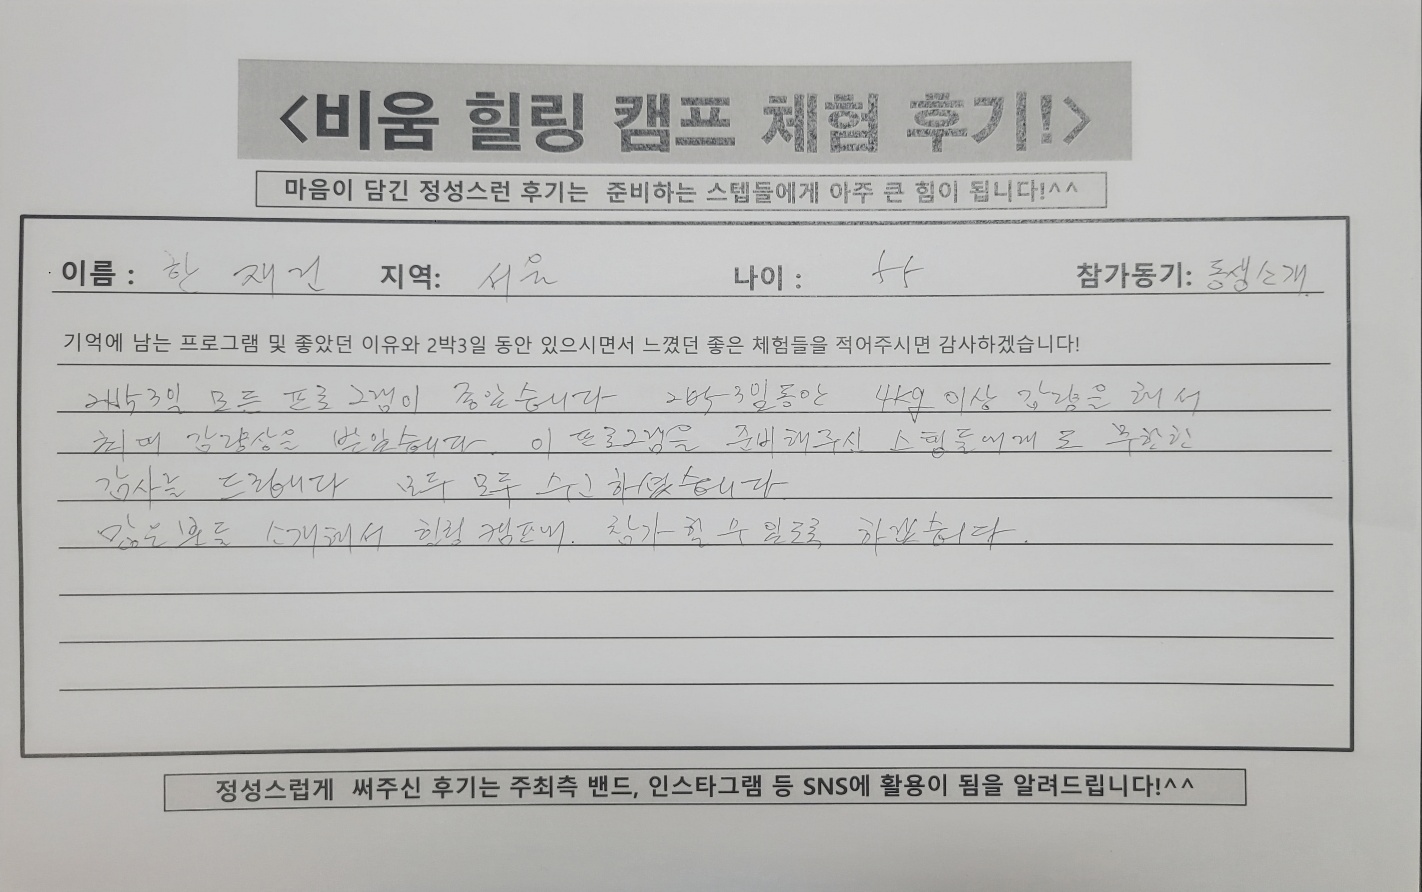 <비움 힐링 캠프 체험 후기!>
마음이 담긴 정성스런 후기는 준비하는 스텝들에게 아주 큰 힘이 됩니다!^^
이름 : 한 재건 지역: 서울 나이 : 55 참가동기: 동생소개.
기억에 남는 프로그램 및 좋았던 이유와 2박3일 동안 있으시면서 느꼈던 좋은 체험들을 적어주시면 감사하겠습니다!
2박3일 모든 프로그램이 좋았습니다 2박3일동안 4kg 이상 감량을 해서
최대 감량상을 받았습니다. 이 프로그램을 준비해주신 스텝들에게도 무한한
감사를 드립니다 모두 모두 수고하셨습니다.
많은 분들 소개해서 힐링 캠프에. 참가 할 수 있도록 하겠습니다.
정성스럽게 써주신 후기는 주최측 밴드, 인스타그램 등 SNS에 활용이 됨을 알려드립니다!^^